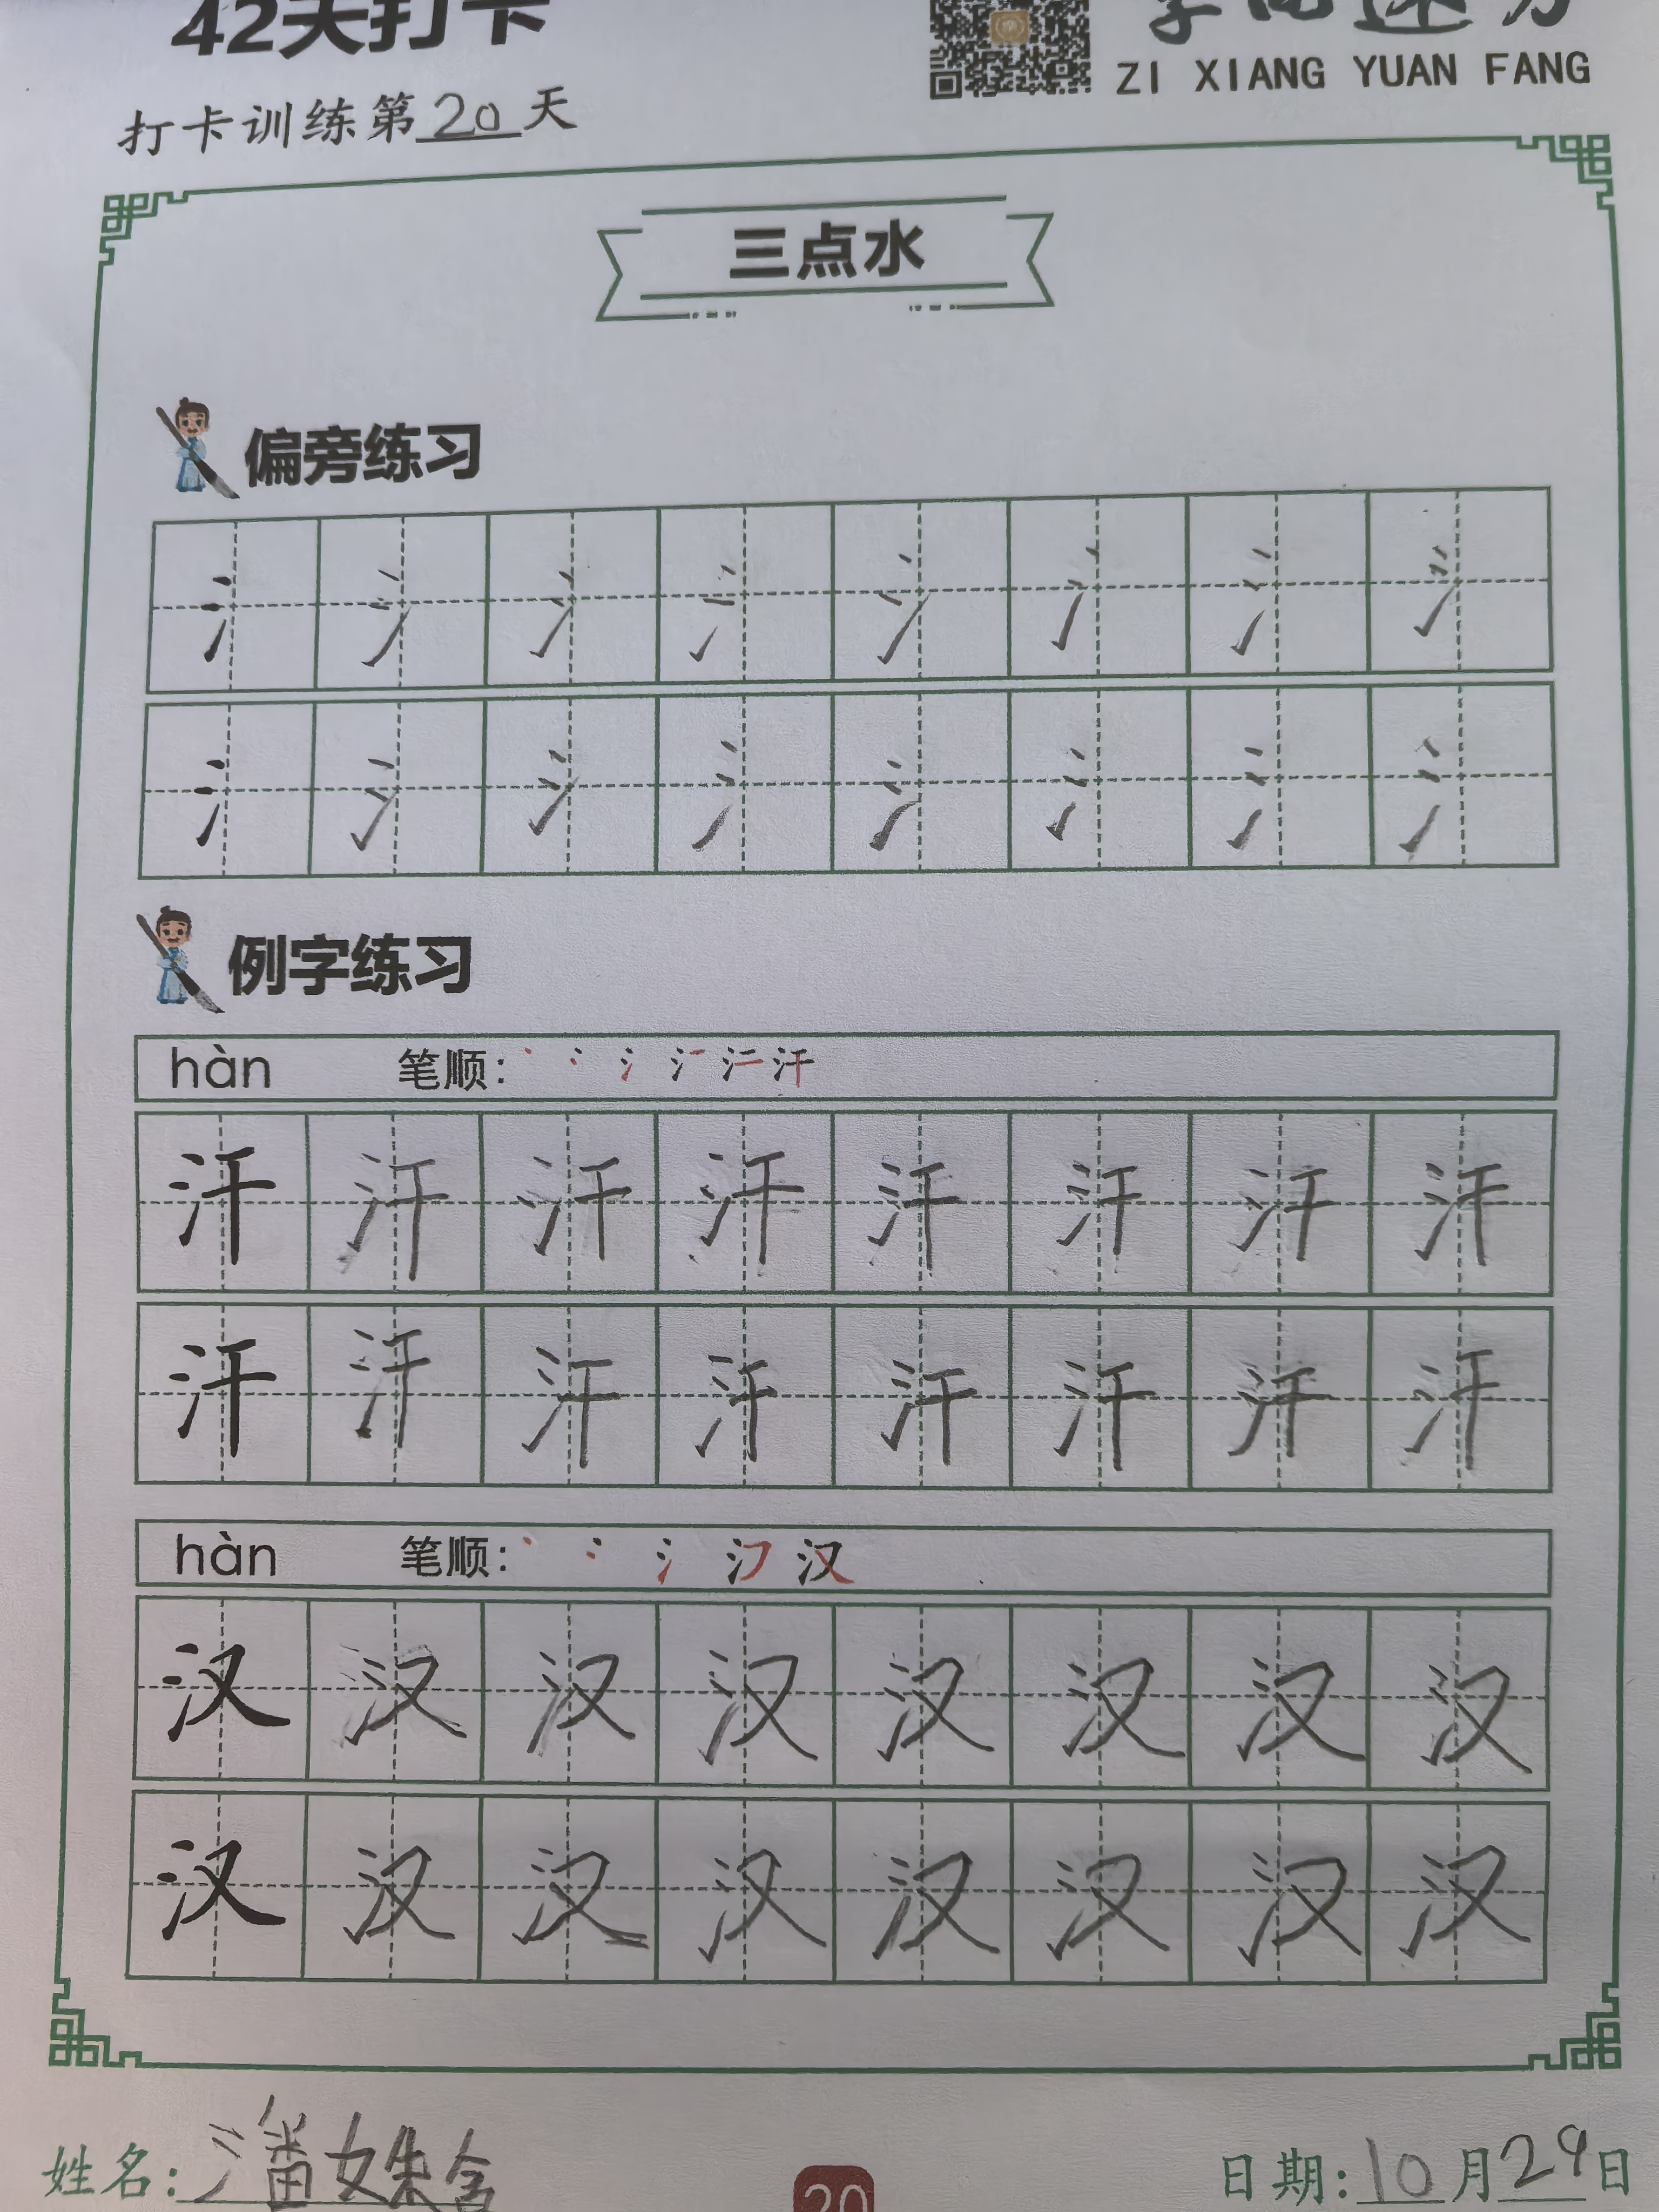 42天打卡
ZI XIANG YUAN FANG
打卡训练第20天
三点水
偏旁练习
氵氵氵氵氵氵氵氵
氵氵氵氵氵氵氵氵
例字练习
hàn 笔顺: 丶 冫 氵 汗
汗汗汗汗汗汗汗汗
汗汗汗汗汗汗汗汗
hàn 笔顺: 丶 冫 氵 汉
汉汉汉汉汉汉汉汉
汉汉汉汉汉汉汉汉
姓名: 潘姝含
20
日期: 10月29日